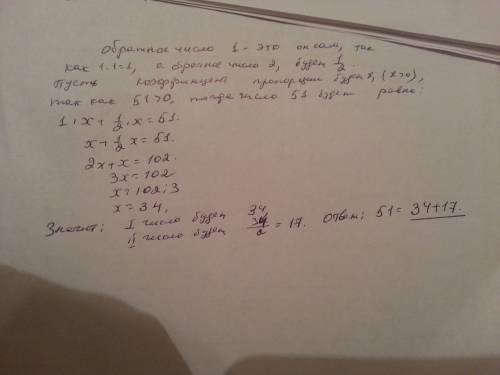 Обратное число 1 - это он сам, так
как 1·1=1, а обратное число 2, будет 1/2.
Пусть коэффициент пропорции будет x, (x>0),
так как 51>0, тогда число 51 будет равно:
1·x + 1/2·x = 51.
x + 1/2 x = 51.
2x + x = 102.
3x = 102
x = 102:3
x = 34,
Значит: I число будет 34
II число будет 34/2 = 17. Ответ: 51 = 34+17.